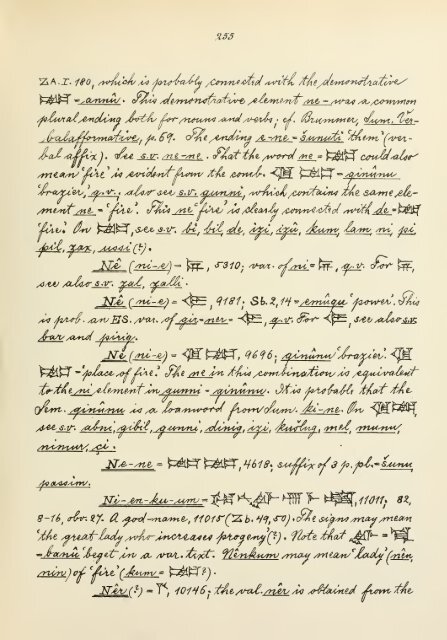 255
ZA. I. 180, which is probably connected with the demonstrative
𒉈 = annû. This demonstrative element ne - was a common
plural ending both for nouns and verbs; cf. Brummer, Sum. Ver-
balafformative, p. 69. The ending e-ne = šunuti 'them' (ver-
bal affix). See s.v. ne-ne. That the word ne = 𒉈 could also
mean 'fire' is evident from the comb. 𒆠 𒉈 = ginûnu
'brazier,' q.v.; also see s.v. gunni, which contains the same ele-
ment ne = 'fire'. This ne 'fire' is clearly connected with de = 𒉈
'fire'. On 𒉈, see s.v. bi, bil, de, izi, izû, kum, lam, ni, pi
pil, zax, ussi (?).
Nê (ni-e) - 5310; var. of ni = q.v. For
see also s.v. zal, zalli.
Nê (ni-e) = 9181; Sb. 2, 14 = emûqu 'power'. This
is prob. an ES. var. of gir = ner = q.v. For see also s.v.
bar and pirig.
Nê (ni-e) = 𒆠 𒉈, 9696; ginûnu 'brazier'. 𒆠
𒉈 = 'place of fire'. The ne in this combination is equivalent
to the ni element in gunni = ginûnu. It is probable that the
Sem. ginunu is a loanword from Sum. ki-ne. On 𒆠 𒉈,
see s.v. abni, gibil, gunni, dinig, izi, mel, munu,
nimur, çi.
Ne-ne = 𒉈 𒉈, 4618; suffix of 3 p. pl. = šunu,
passim.
Ni-en-ku-um = 11011; 82,
8-16, obv. 27. A god-name, 11015 (Zb. 49, 50). The signs may mean
'the great lady who increases progeny' (?). Note that
= banû 'beget' in a var. text. Nênkum may mean 'lady' (nên,
nin) of 'fire' (kum = 𒉈 ?).
Nêr (?) = 10146; the val. nêr is obtained from the